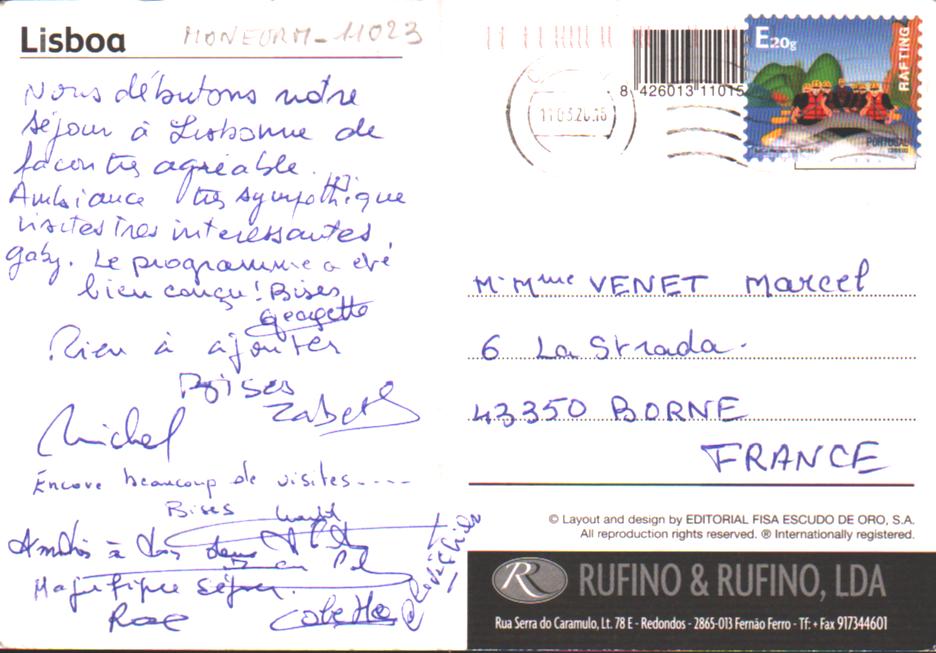 Lisboa
MONFORM-11023
Nous débutons notre
séjour à Lisbonne de
façon très agréable.
Ambiance très sympathique
visites très interessantes
Gaby. Le programme a été
bien conçu! Bises
Georgette
Rien à ajouter
Bises
Zabeth
Michel
Encore beaucoup de visites----
Bises
Amitiés à tous deux
Magnifique séjour.
Rose Colette
E20g
RAFTING
PORTUGAL
8 426013 11015
11.03.20.15
Mr Mme VENET Marcel
6 La Strada.
43350 BORNE
FRANCE
© Layout and design by EDITORIAL FISA ESCUDO DE ORO, S.A.
All reproduction rights reserved. ® Internationally registered.
R RUFINO & RUFINO, LDA
Rua Serra do Caramulo, Lt. 78 E - Redondos - 2865-013 Fernão Ferro - Tf: + Fax 917344601